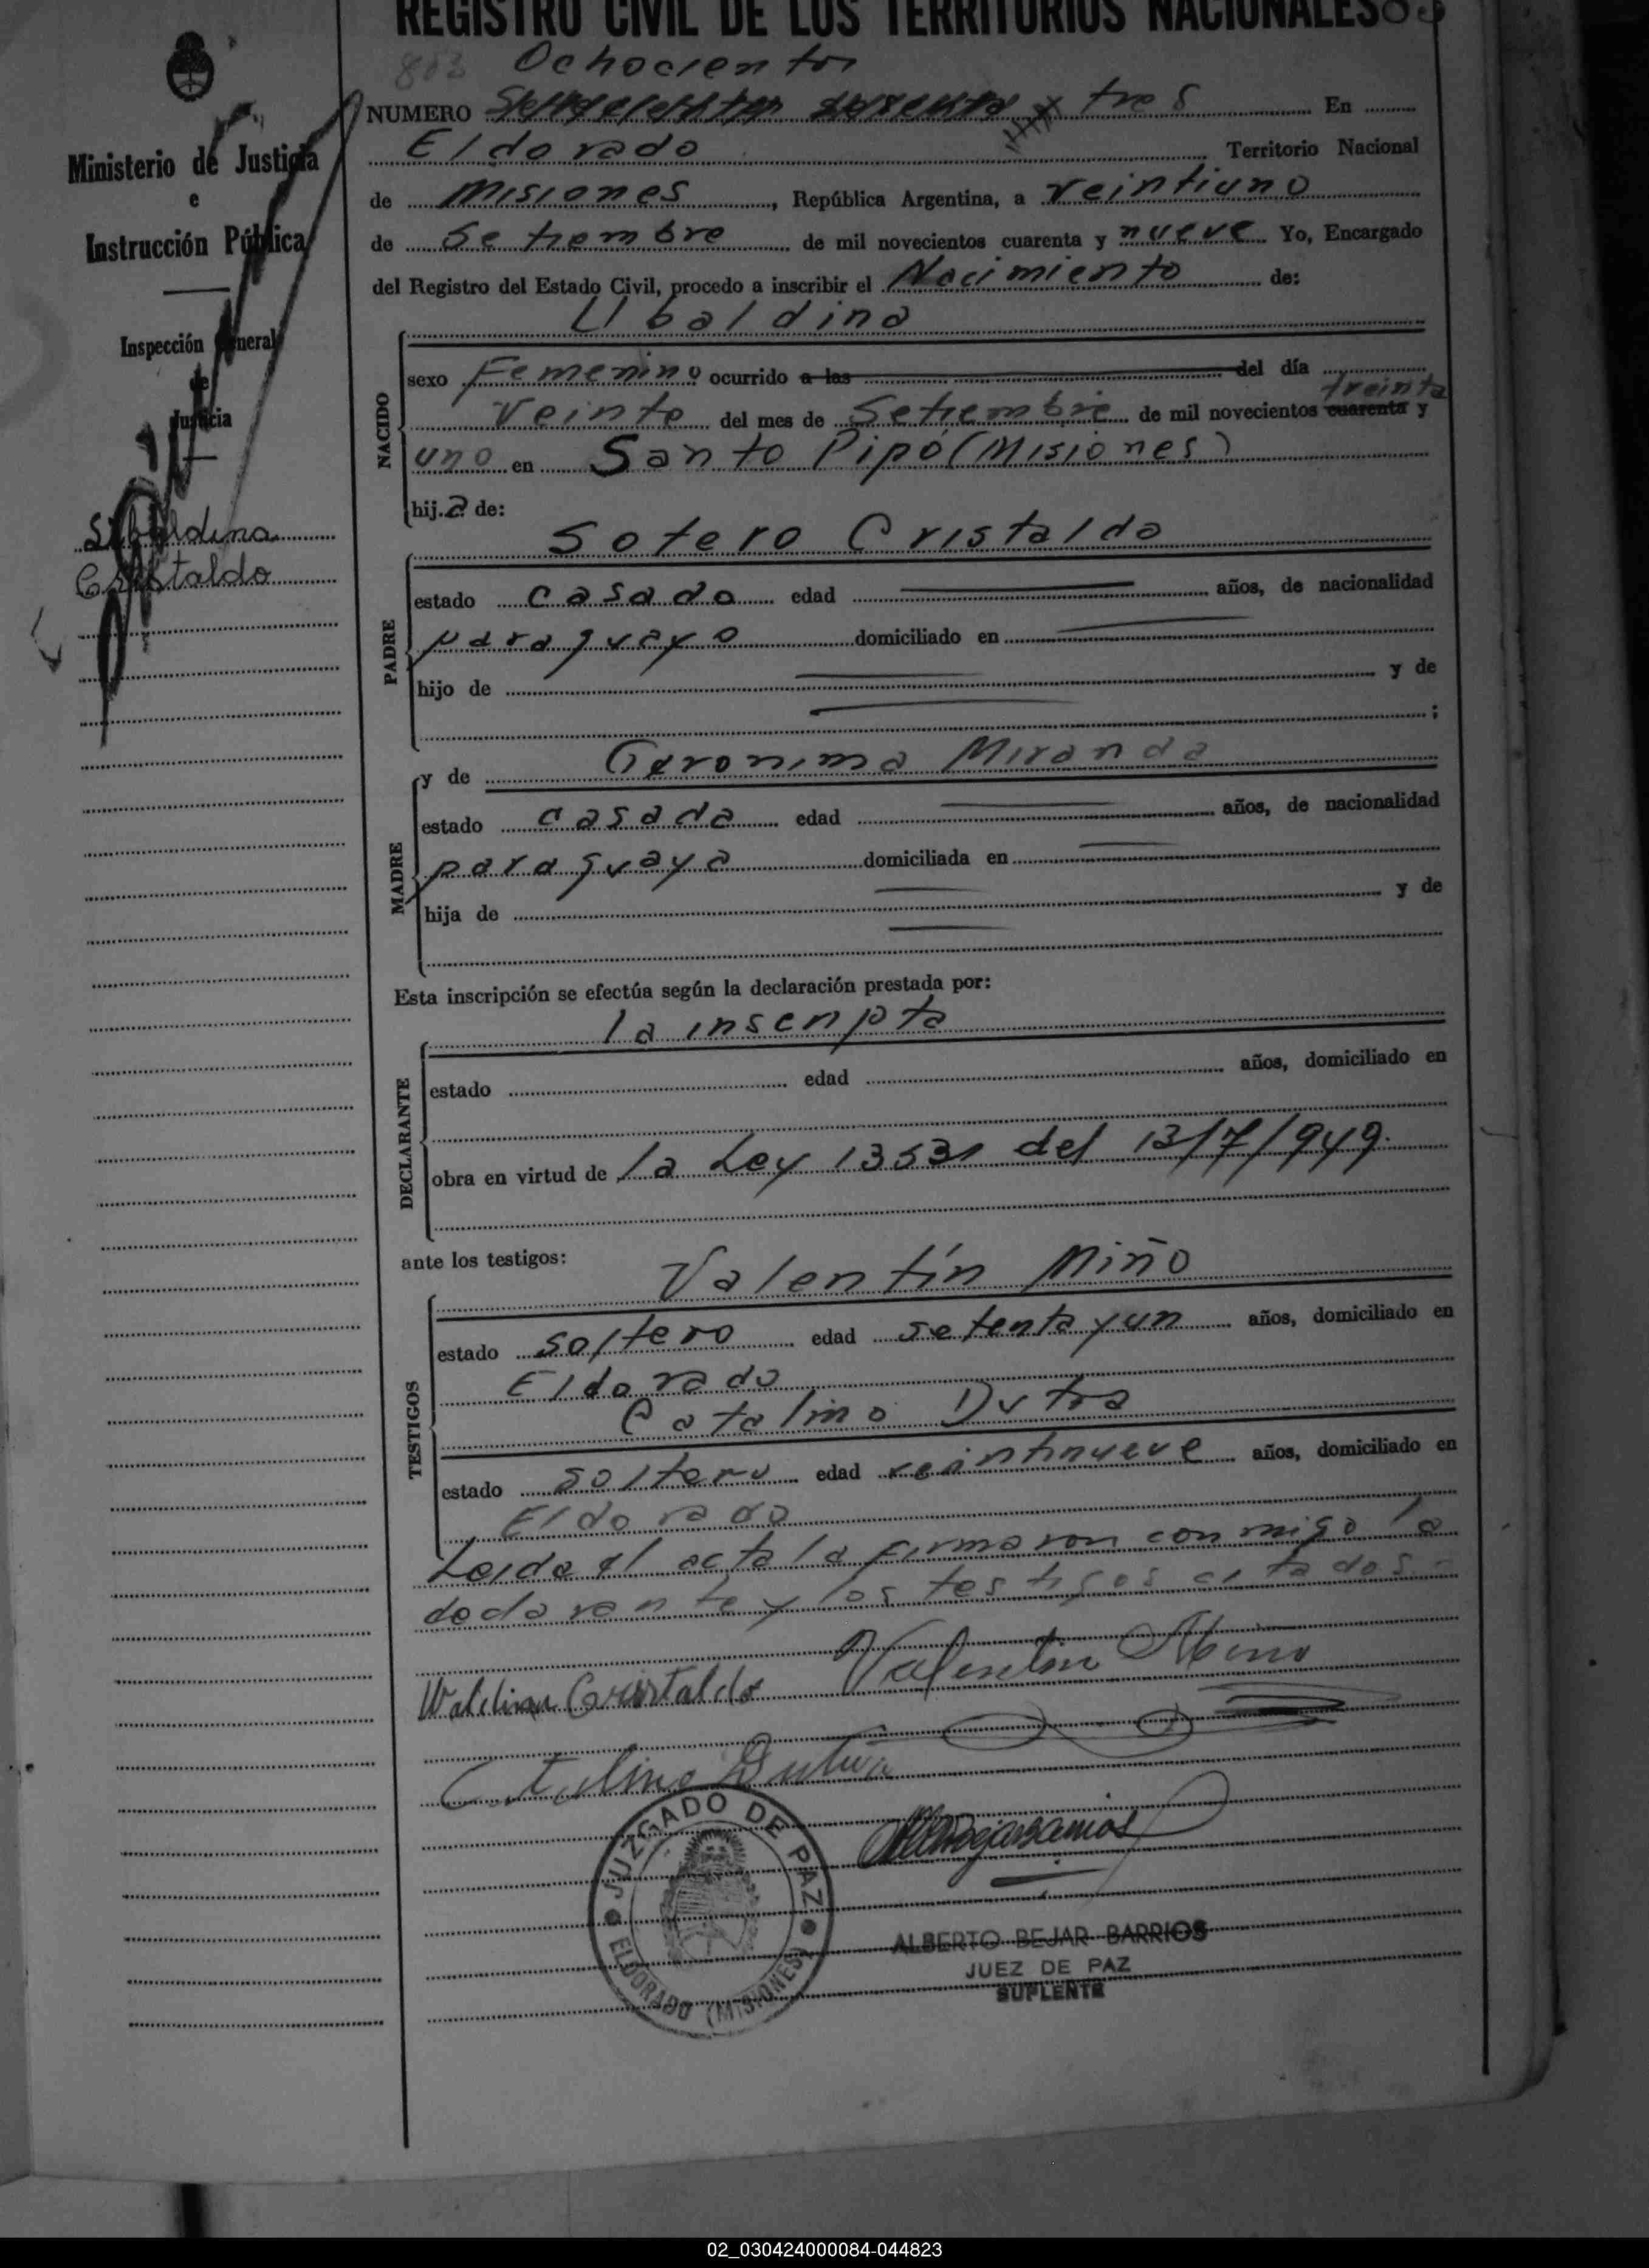 REGISTRO CIVIL DE LOS TERRITORIOS NACIONALES
803 Ochocientos
NUMERO y tres En
Eldorado Territorio Nacional
de Misiones, República Argentina, a veintiuno
de Setiembre de mil novecientos cuarenta y nueve Yo, Encargado
del Registro del Estado Civil, procedo a inscribir el Nacimiento de:
Ubaldina
NACIDO
sexo Femenino ocurrido a las del día
treinta
veinte del mes de Setiembre de mil novecientos cuarenta y
uno en Santo Pipó (Misiones)
hija de:
Sotero Cristaldo
PADRE
estado casado edad años, de nacionalidad
paraguayo domiciliado en
hijo de y de
;
y de Geronima Miranda
MADRE
estado casada edad años, de nacionalidad
paraguaya domiciliada en
hija de y de
Esta inscripción se efectúa según la declaración prestada por:
la inscripta
DECLARANTE
estado edad años, domiciliado en
obra en virtud de la Ley 13531 del 13/7/949.
ante los testigos:
Valentín Miño
TESTIGOS
estado soltero edad setenta y un años, domiciliado en
Eldorado
Catalino Dutra
estado soltero edad veintinueve años, domiciliado en
Eldorado
Leida el acta la firmaron conmigo la
declarante y los testigos citados.-
Valentin Miño
Waldina Cristaldo
Catalino Dutra
JUZGADO DE PAZ
ELDORADO (MISIONES)
ALBERTO BEJAR BARRIOS
JUEZ DE PAZ
SUPLENTE
Ministerio de Justicia
e
Instrucción Pública
Inspección General
de
Justicia
Ubaldina
Cristaldo
02_030424000084-044823